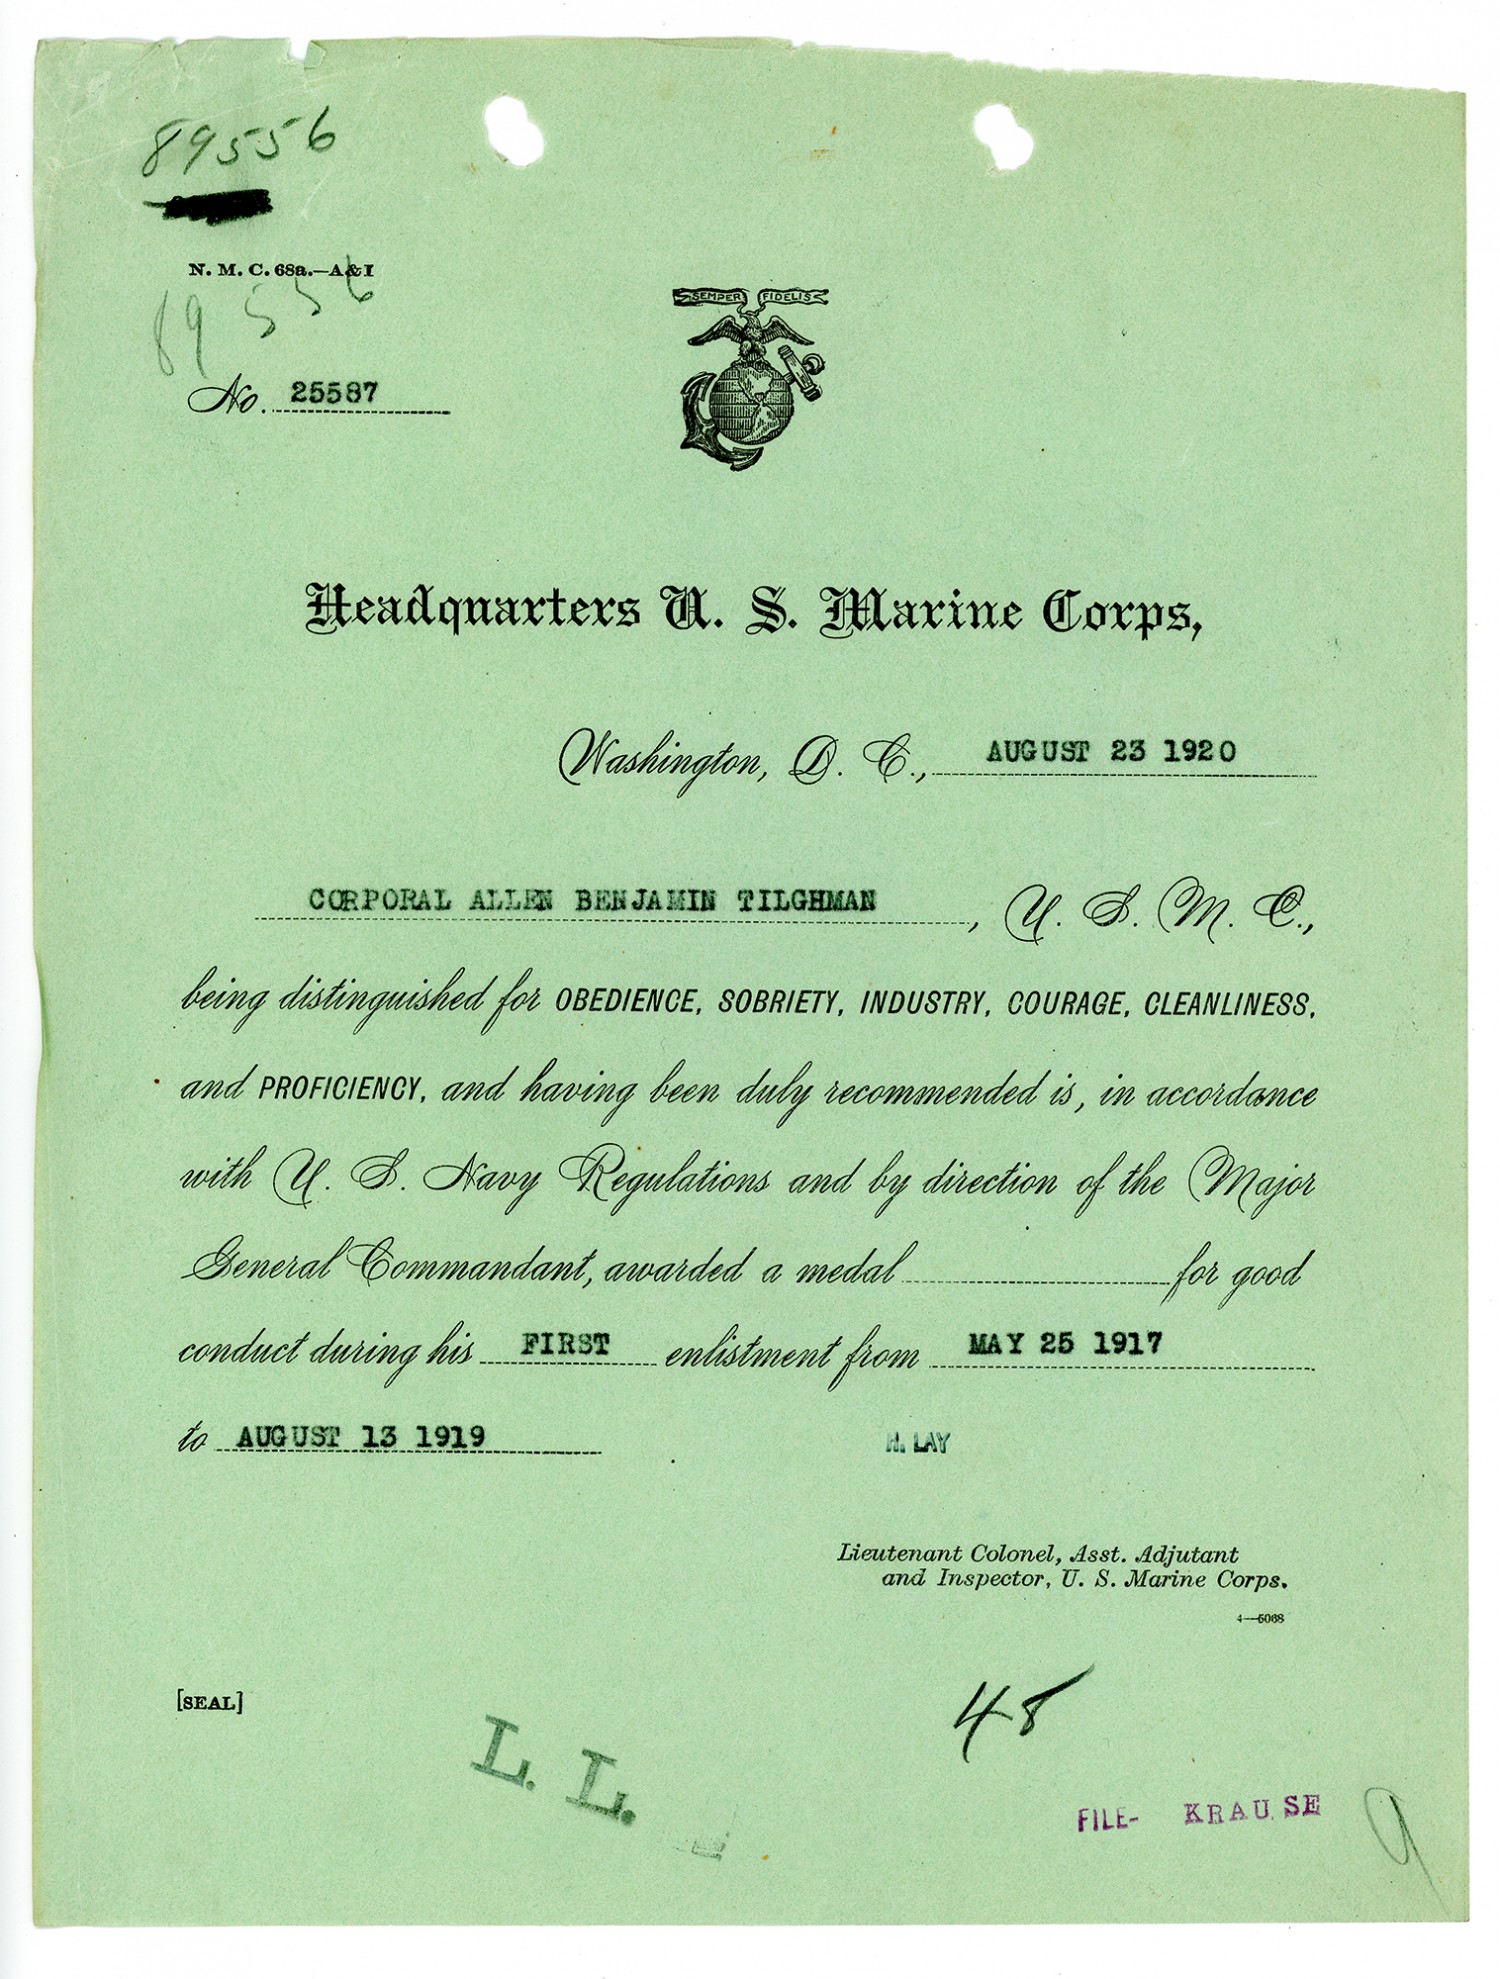 89556
N. M. C. 68a.—A&I
89556
No. 25587
SEMPER FIDELIS
Headquarters U. S. Marine Corps,
Washington, D. C., AUGUST 23 1920
CORPORAL ALLEN BENJAMIN TILGHMAN, U. S. M. C.,
being distinguished for OBEDIENCE, SOBRIETY, INDUSTRY, COURAGE, CLEANLINESS,
and PROFICIENCY, and having been duly recommended is, in accordance
with U. S. Navy Regulations and by direction of the Major
General Commandant, awarded a medal for good
conduct during his FIRST enlistment from MAY 25 1917
to AUGUST 13 1919
H. LAY
Lieutenant Colonel, Asst. Adjutant
and Inspector, U. S. Marine Corps.
4—5068
[SEAL]
48
L. L.
FILE- KRAUSE
9